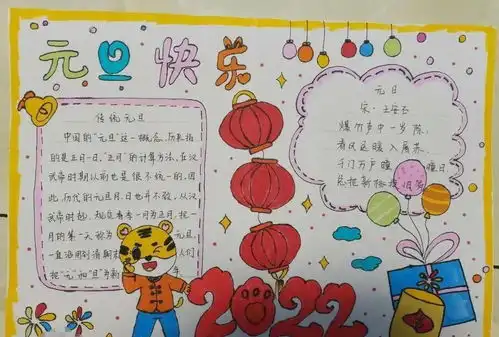 元旦快乐
传统元旦
中国的“元旦”这一概念,历来指
的是正月一日。“正月”的计算方法,在汉
武帝时期以前也是很不统一的,因
此,历代的元旦月、日也并不一致,从汉
武帝时起,规定春季一月为正月,把一
月的第一天称为 元旦,
一直沿用到清朝末 人们
把“元”和“旦” 年
元日
宋·王安石
爆竹声中一岁除,
春风送暖入屠苏。
千门万户曈 曈日
总把新桃换旧符
2022